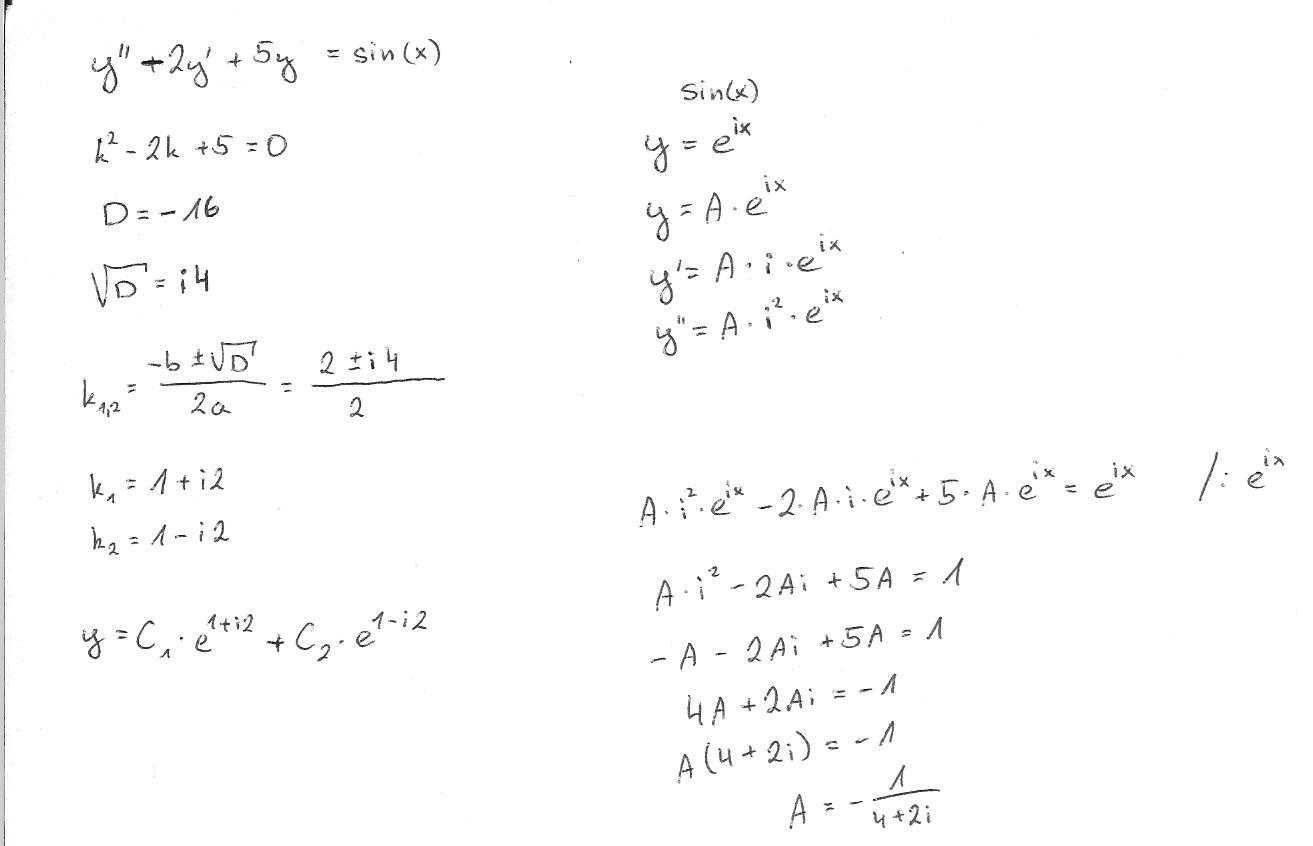 y'' + 2y' + 5y = sin(x)
k² - 2k + 5 = 0
D = -16
√D = i4
k₁,₂ = (-b ± √D)/(2a) = (2 ± i4)/2
k₁ = 1 + i2
k₂ = 1 - i2
y = C₁ · e^(1+i2) + C₂ · e^(1-i2)
sin(x)
y = e^(ix)
y = A · e^(ix)
y' = A · i · e^(ix)
y'' = A · i² · e^(ix)
A · i² · e^(ix) - 2 · A · i · e^(ix) + 5 · A · e^(ix) = e^(ix) /: e^(ix)
A · i² - 2Ai + 5A = 1
-A - 2Ai + 5A = 1
4A + 2Ai = -1
A(4 + 2i) = -1
A = - 1/(4+2i)